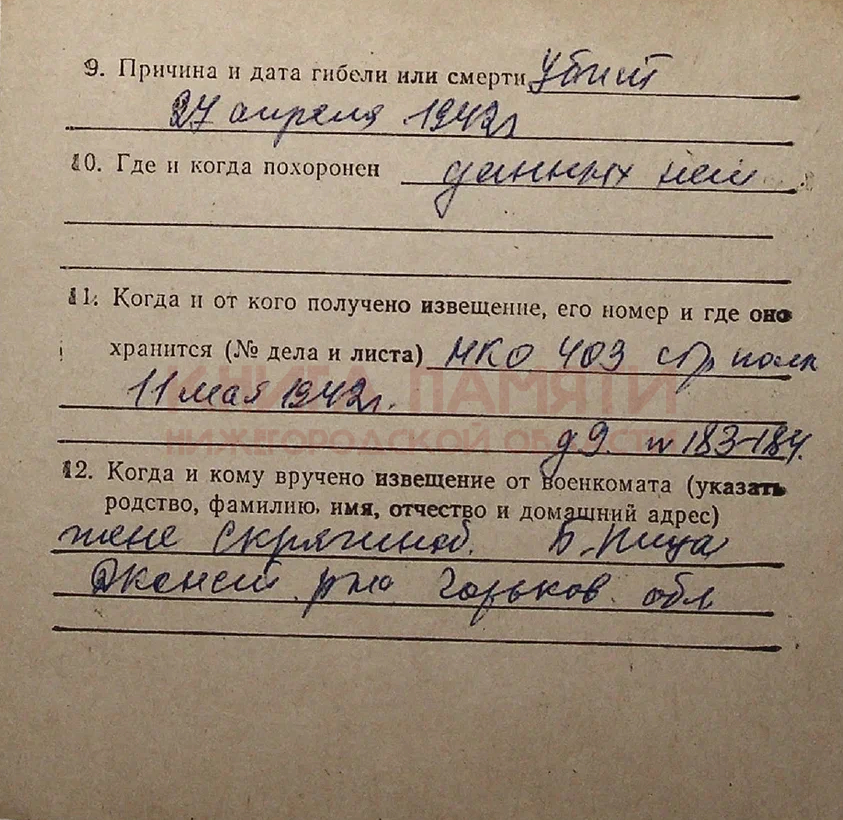 9. Причина и дата гибели или смерти убит
27 апреля 1942г
10. Где и когда похоронен данных нет
11. Когда и от кого получено извещение, его номер и где оно
хранится (№ дела и листа) НКО 403 стр полк
11 мая 1942г.
КНИГА ПАМЯТИ
НИЖЕГОРОДСКОЙ ОБЛАСТИ
д 9. 183-184.
12. Когда и кому вручено извещение от военкомата (указать
родство, фамилию, имя, отчество и домашний адрес)
жене Б-Пица
р-на Горьков. обл